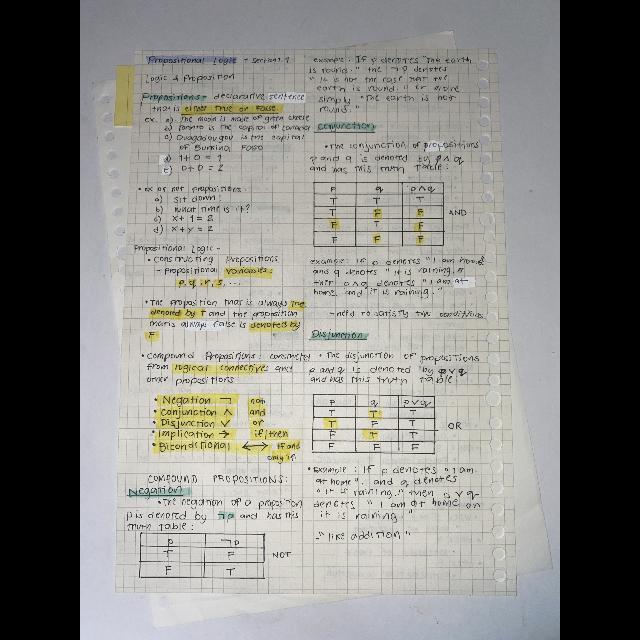 Propositional Logic - section 1
Logic & Proposition
Propositions - declarative sentence
that is either true or false.
ex. a) The moon is made of green cheese
b) Toronto is the capital of Canada
c) Ouagadougou is the capital
of Burkina Faso
d) 1+0=1
e) 0+0=2
• ex of not propositions:
a) sit down!
b) what time is it?
c) x+1=2
d) x+y=z
Propositional Logic -
• constructing Propositions
- propositional variables:
p, q, r, s, ...
• The proposition that is always true
denoted by T and the proposition
that is always false is denoted by
F
• Compound Propositions: constructed
from logical connectives and
other propositions
• Negation ¬ not
• Conjunction ∧ and
• Disjunction ∨ or
• Implication → if/then
• Biconditional ↔ if and
only if
COMPOUND PROPOSITIONS:
Negation
• The negation of a proposition
p is denoted by ¬p and has this
truth table:
p ¬p
T F
F T
NOT
example: If p denotes "the earth
is round." the ¬p denotes
"it is not the case that the
earth is round." or more
simply "The earth is not
round."
conjunction
• The conjunction of propositions
p and q is denoted by p∧q
and has this truth table:
p q p∧q
T T T
T F F
F T F
F F F
AND
example: if p denotes "I am home"
and q denotes "it is raining."
then p∧q denotes "I am at
home and it is raining."
- need to satisfy two conditions
Disjunction
• The disjunction of propositions
p and q is denoted by p∨q
and has this truth table:
p q p∨q
T T T
T F T
F T T
F F F
OR
• Example: If p denotes "I am
at home". and q denotes
"it is raining." then p∨q
denotes "I am at home or
it is raining."
- "like addition"